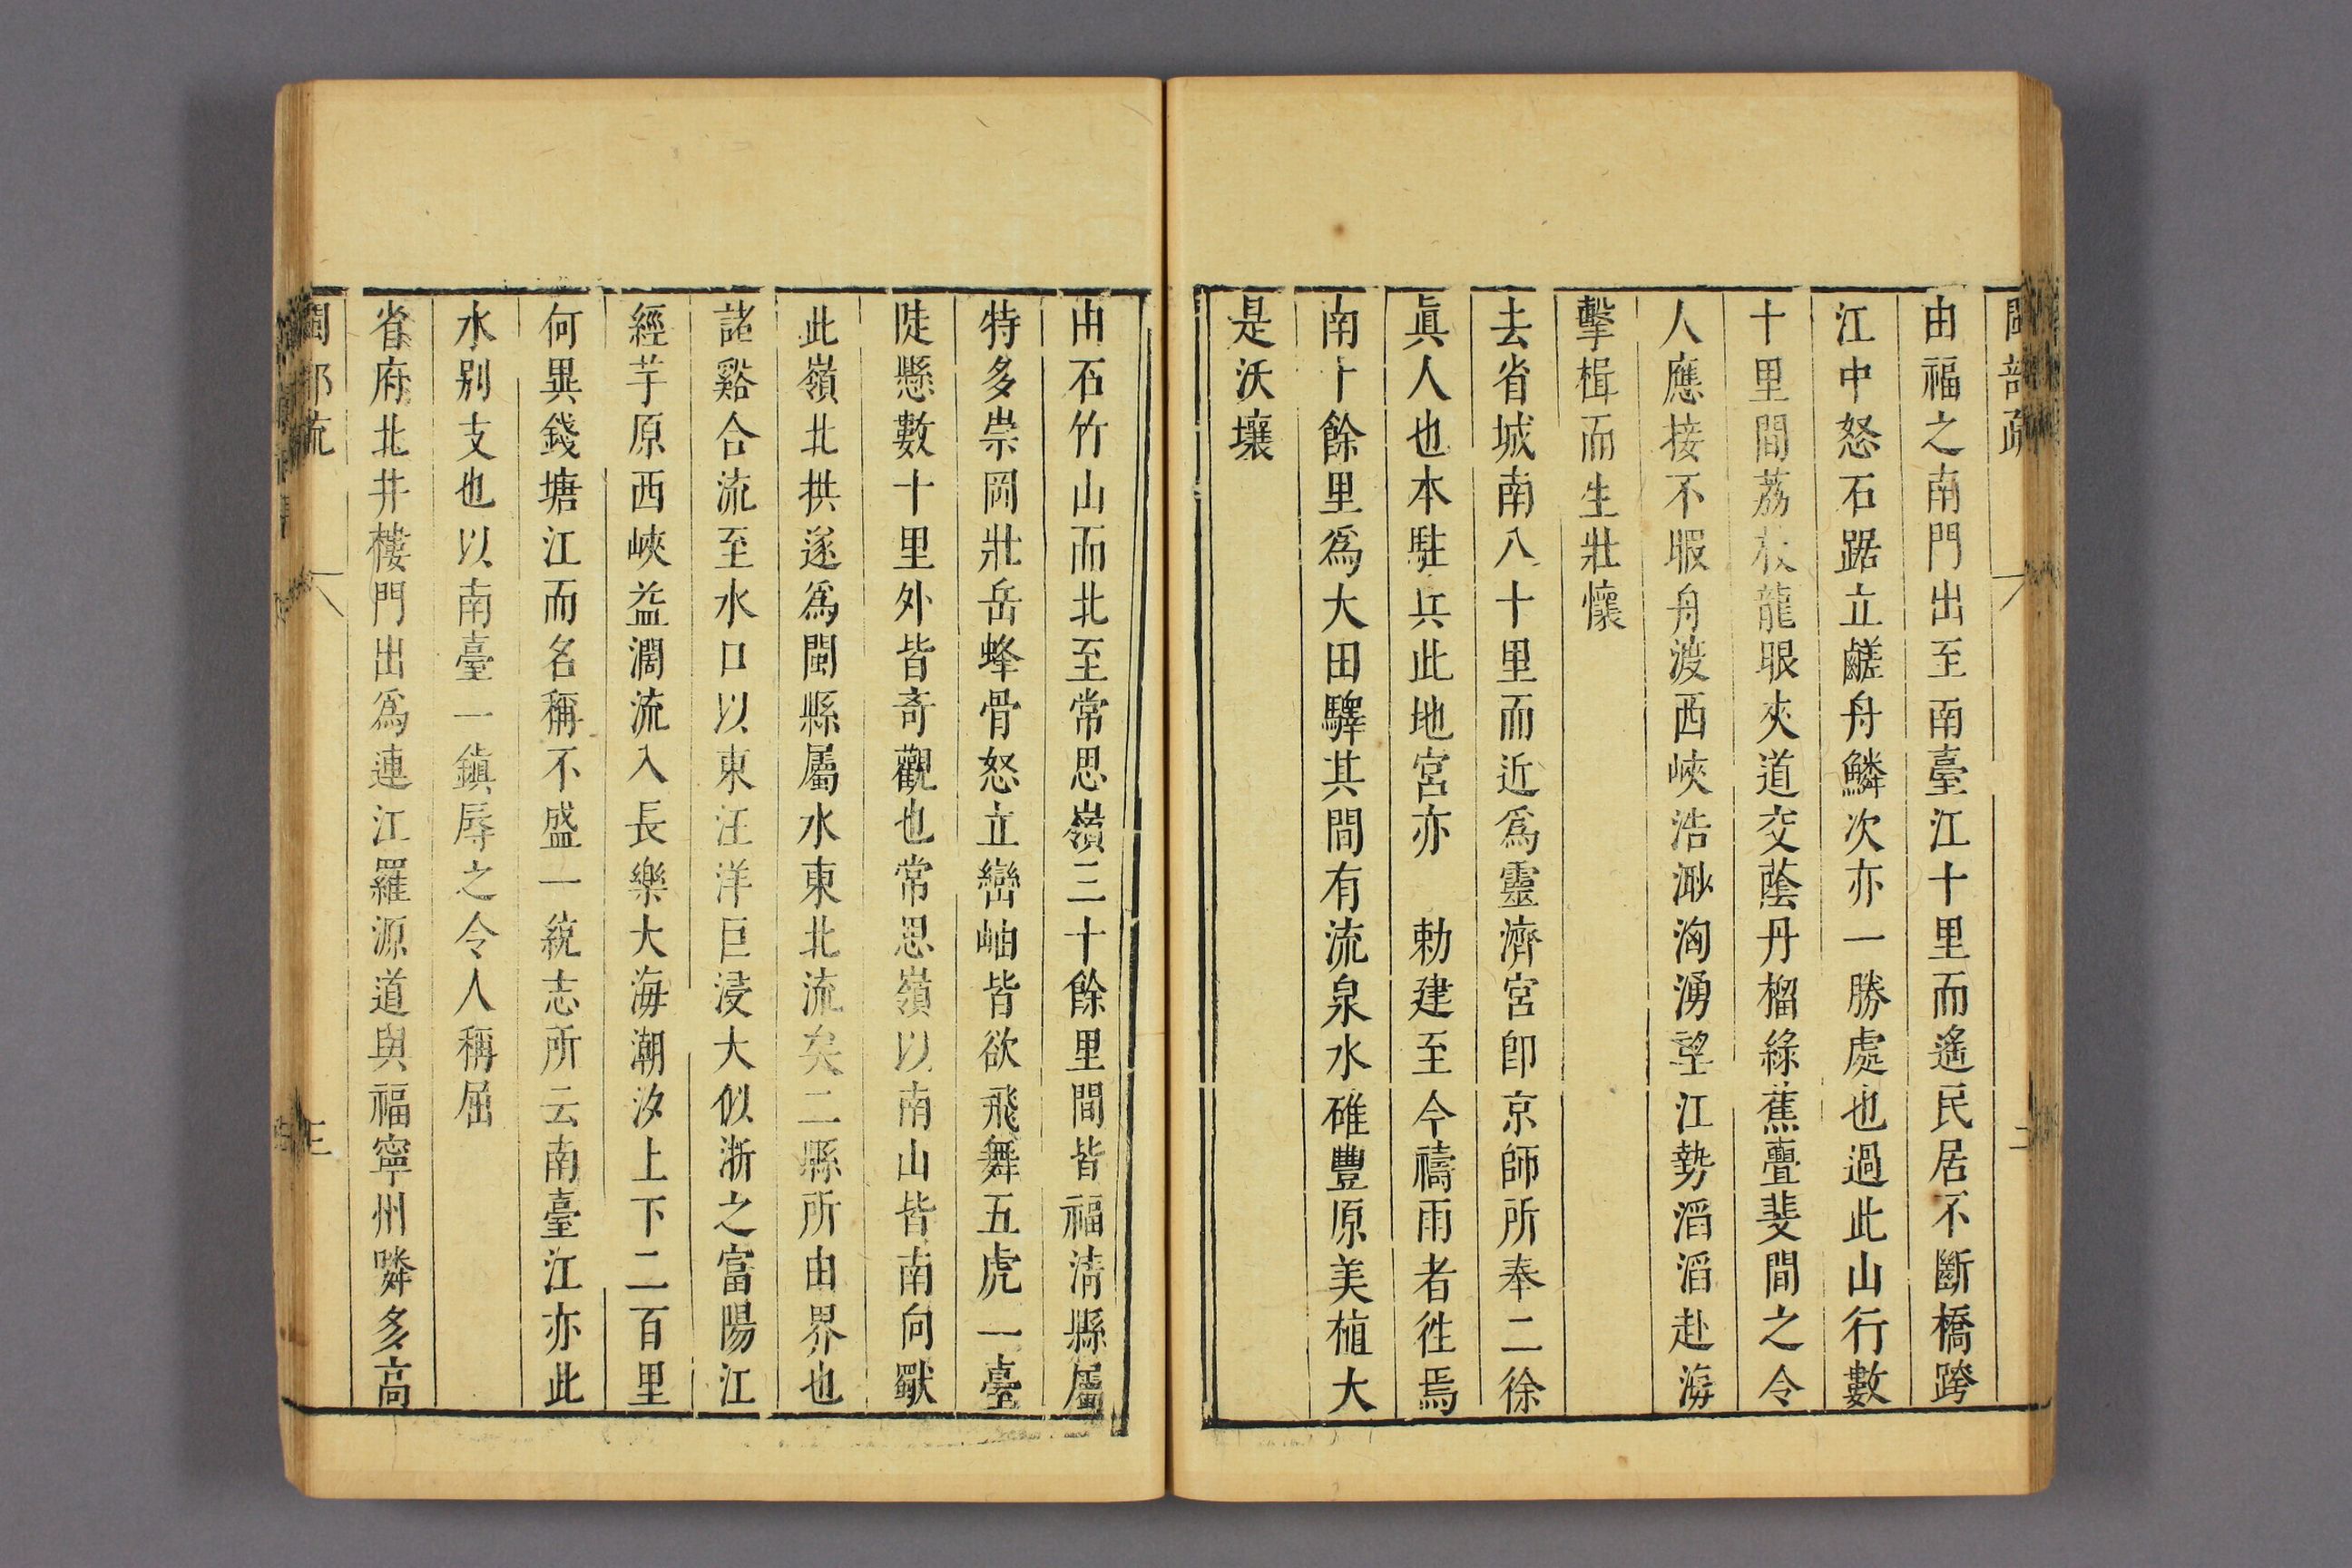 閩部疏
六
二
由福之南門出至南臺江十里而遙民居不斷橋跨
江中怒石踞立鹺舟鱗次亦一勝處也過此山行數
十里間荔枝龍眼夾道交蔭丹榴綠蕉疊斐間之令
人應接不暇舟渡西峽浩渺洶湧望江勢滔滔赴海
擊楫而生壯懷
去省城南八十里而近爲靈濟宮卽京師所奉二徐
眞人也本駐兵此地宮亦　勅建至今禱雨者徃焉
南十餘里爲大田驛其間有流泉水碓豐原美植大
是沃壤
由石竹山而北至常思嶺三十餘里間皆福淸縣屬
特多崇岡壯岳蜂骨怒立巒岫皆欲飛舞五虎一臺
陡懸數十里外皆奇觀也常思嶺以南山皆南向獸
此嶺北拱遂爲閩縣屬水東北流矣二縣所由界也
諸谿合流至水口以東汪洋巨浸大似浙之富陽江
經芋原西峽益濶流入長樂大海潮汐上下二百里
何異錢塘江而名稱不盛一統志所云南臺江亦此
水别支也以南臺一鎮辱之令人稱屈
省府北井樓門出爲連江羅源道與福寧州疄多高
閩部疏
六
三